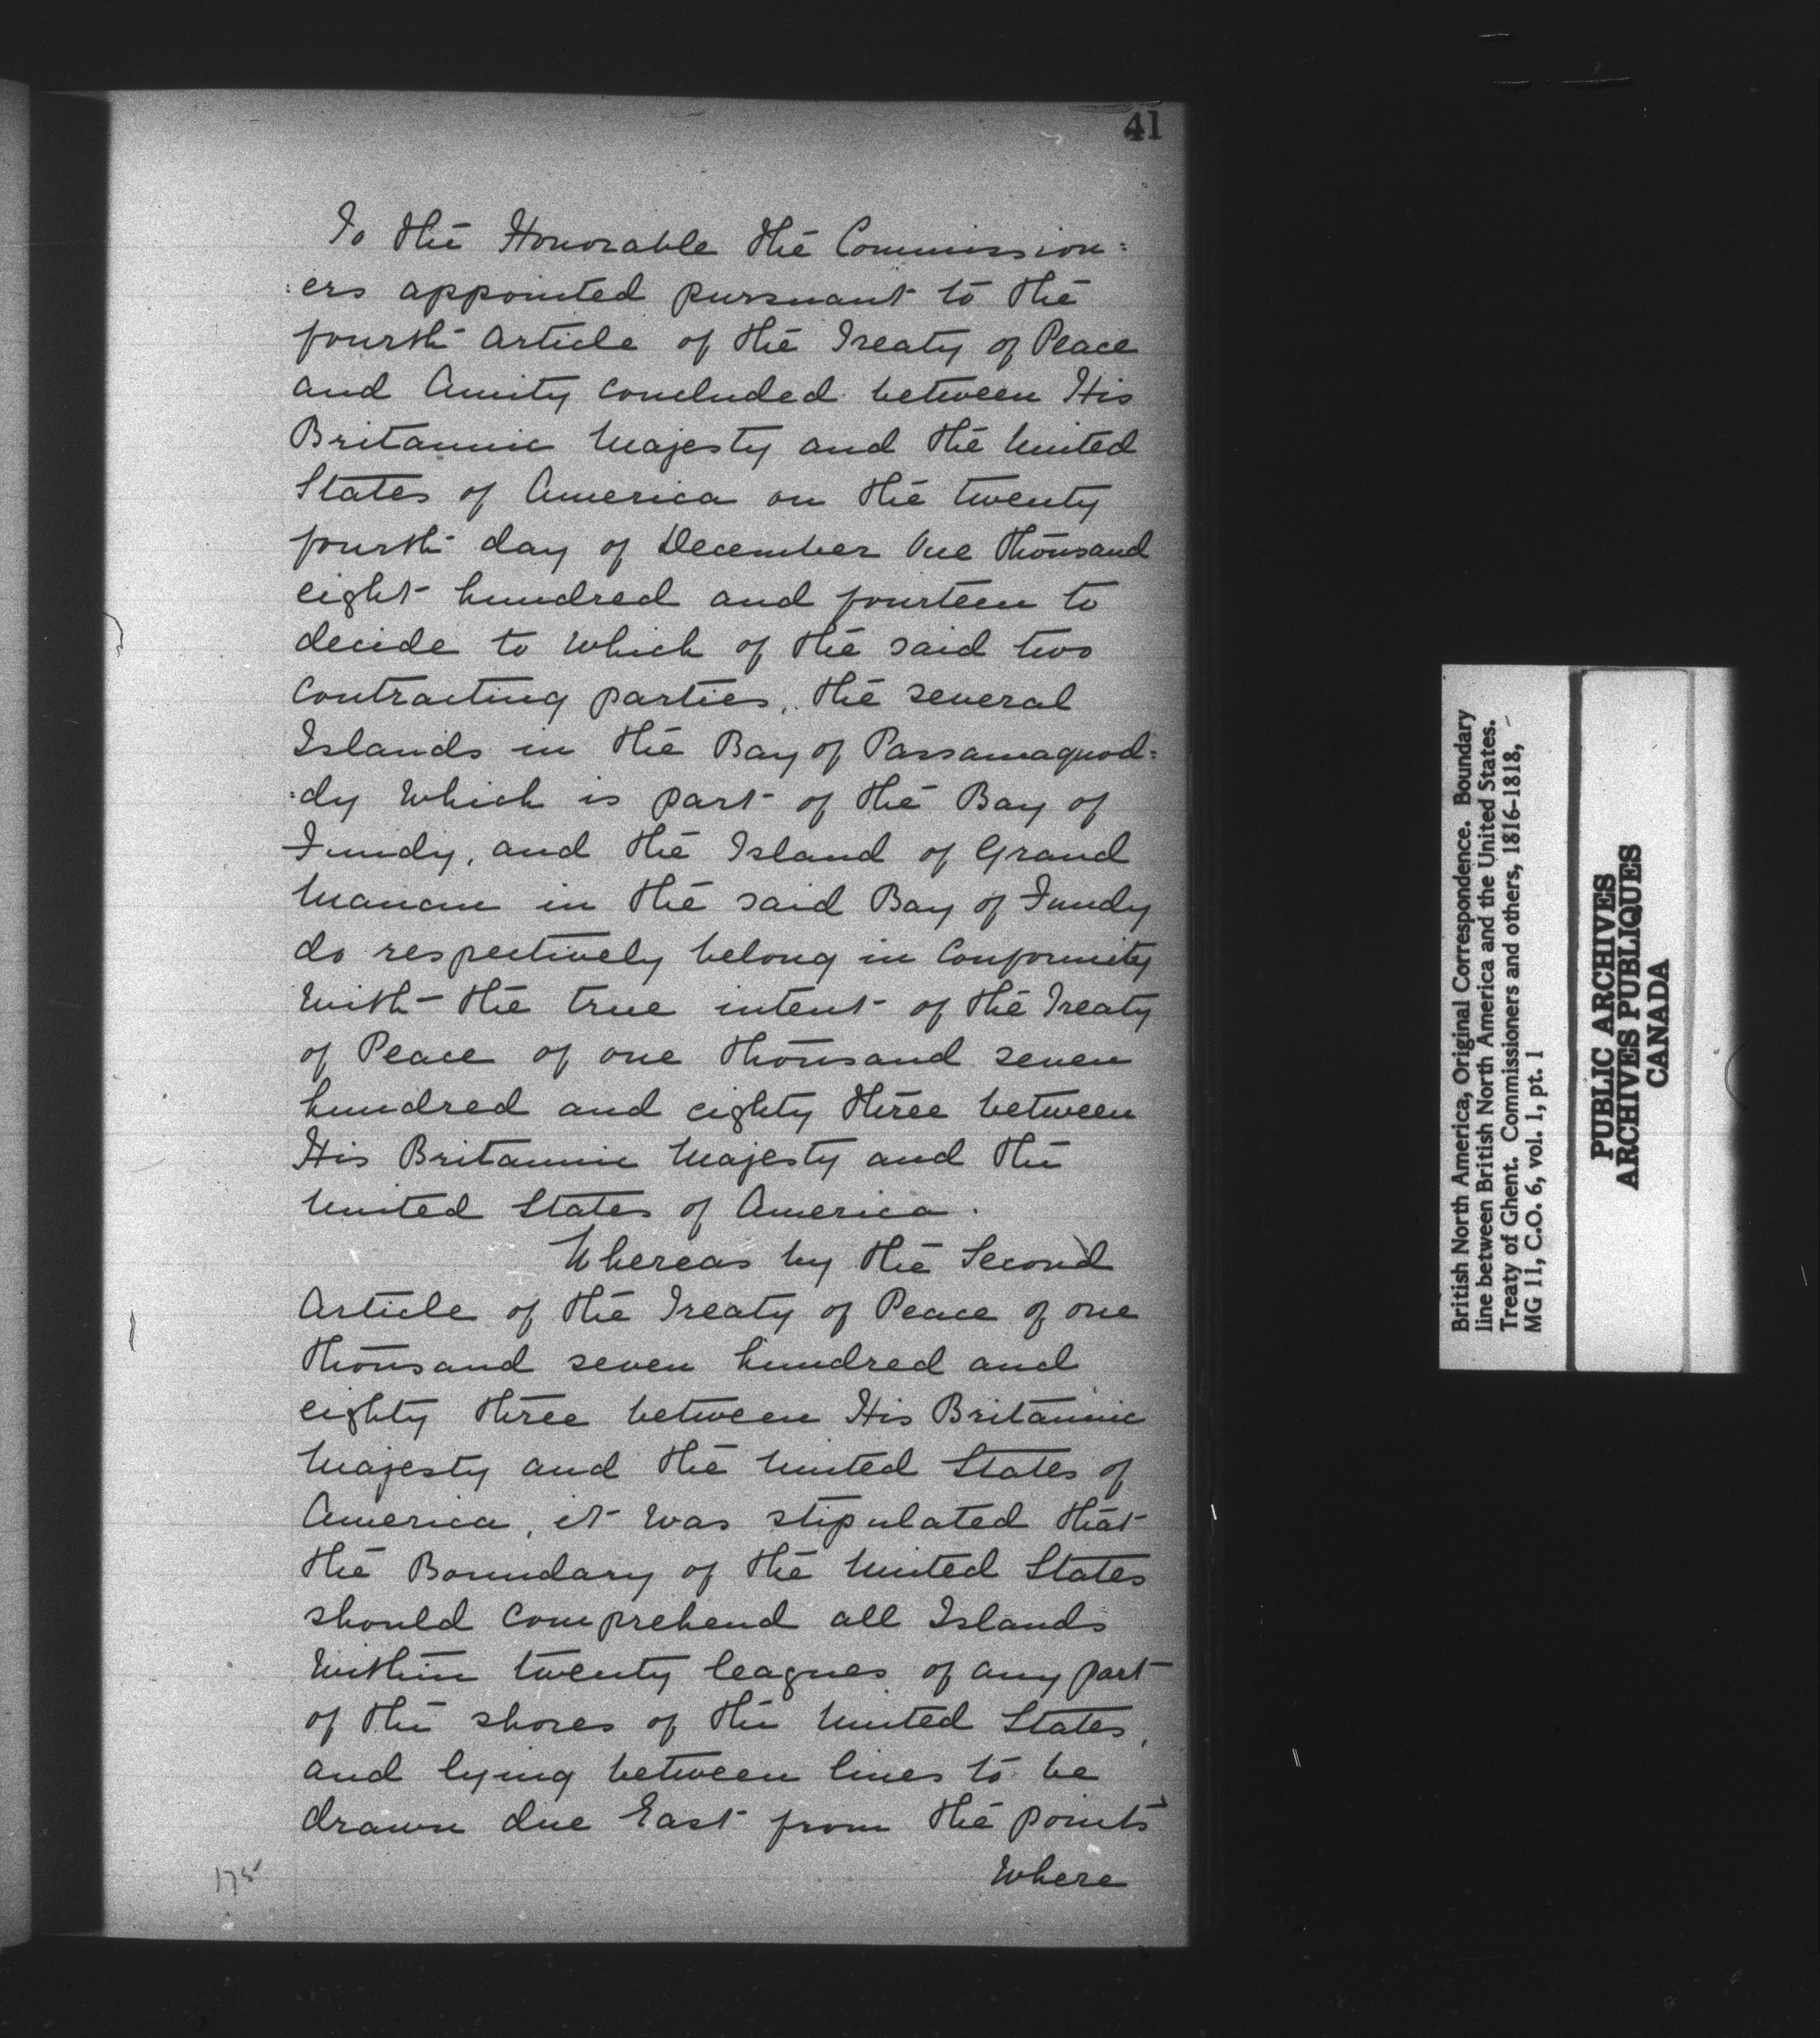 41
To the Honorable the Commission=
:ers appointed pursuant to the
fourth Article of the Treaty of Peace
and Amity concluded between His
Britannic Majesty and the United
States of America on the twenty
fourth day of December One thousand
eight hundred and fourteen to
decide to which of the said two
contracting parties, the several
Islands in the Bay of Passamaquod=
:dy which is part of the Bay of
Fundy, and the Island of Grand
Manan in the said Bay of Fundy
do respectively belong in Conformity
with the true intent of the Treaty
of Peace of one thousand seven
hundred and eighty three between
His Britannic Majesty and the
United States of America.
Whereas by the Second
Article of the Treaty of Peace of one
thousand seven hundred and
eighty three between His Britannic
Majesty and the United States of
America, it was stipulated that
the Boundary of the United States
should comprehend all Islands
within twenty leagues of any part
of the shores of the United States,
and lying between lines to be
drawn due East from the points
Where
175
British North America, Original Correspondence. Boundary
line between British North America and the United States.
Treaty of Ghent. Commissioners and others, 1816-1818,
MG 11, C.O. 6, vol. 1, pt. 1
PUBLIC ARCHIVES
ARCHIVES PUBLIQUES
CANADA